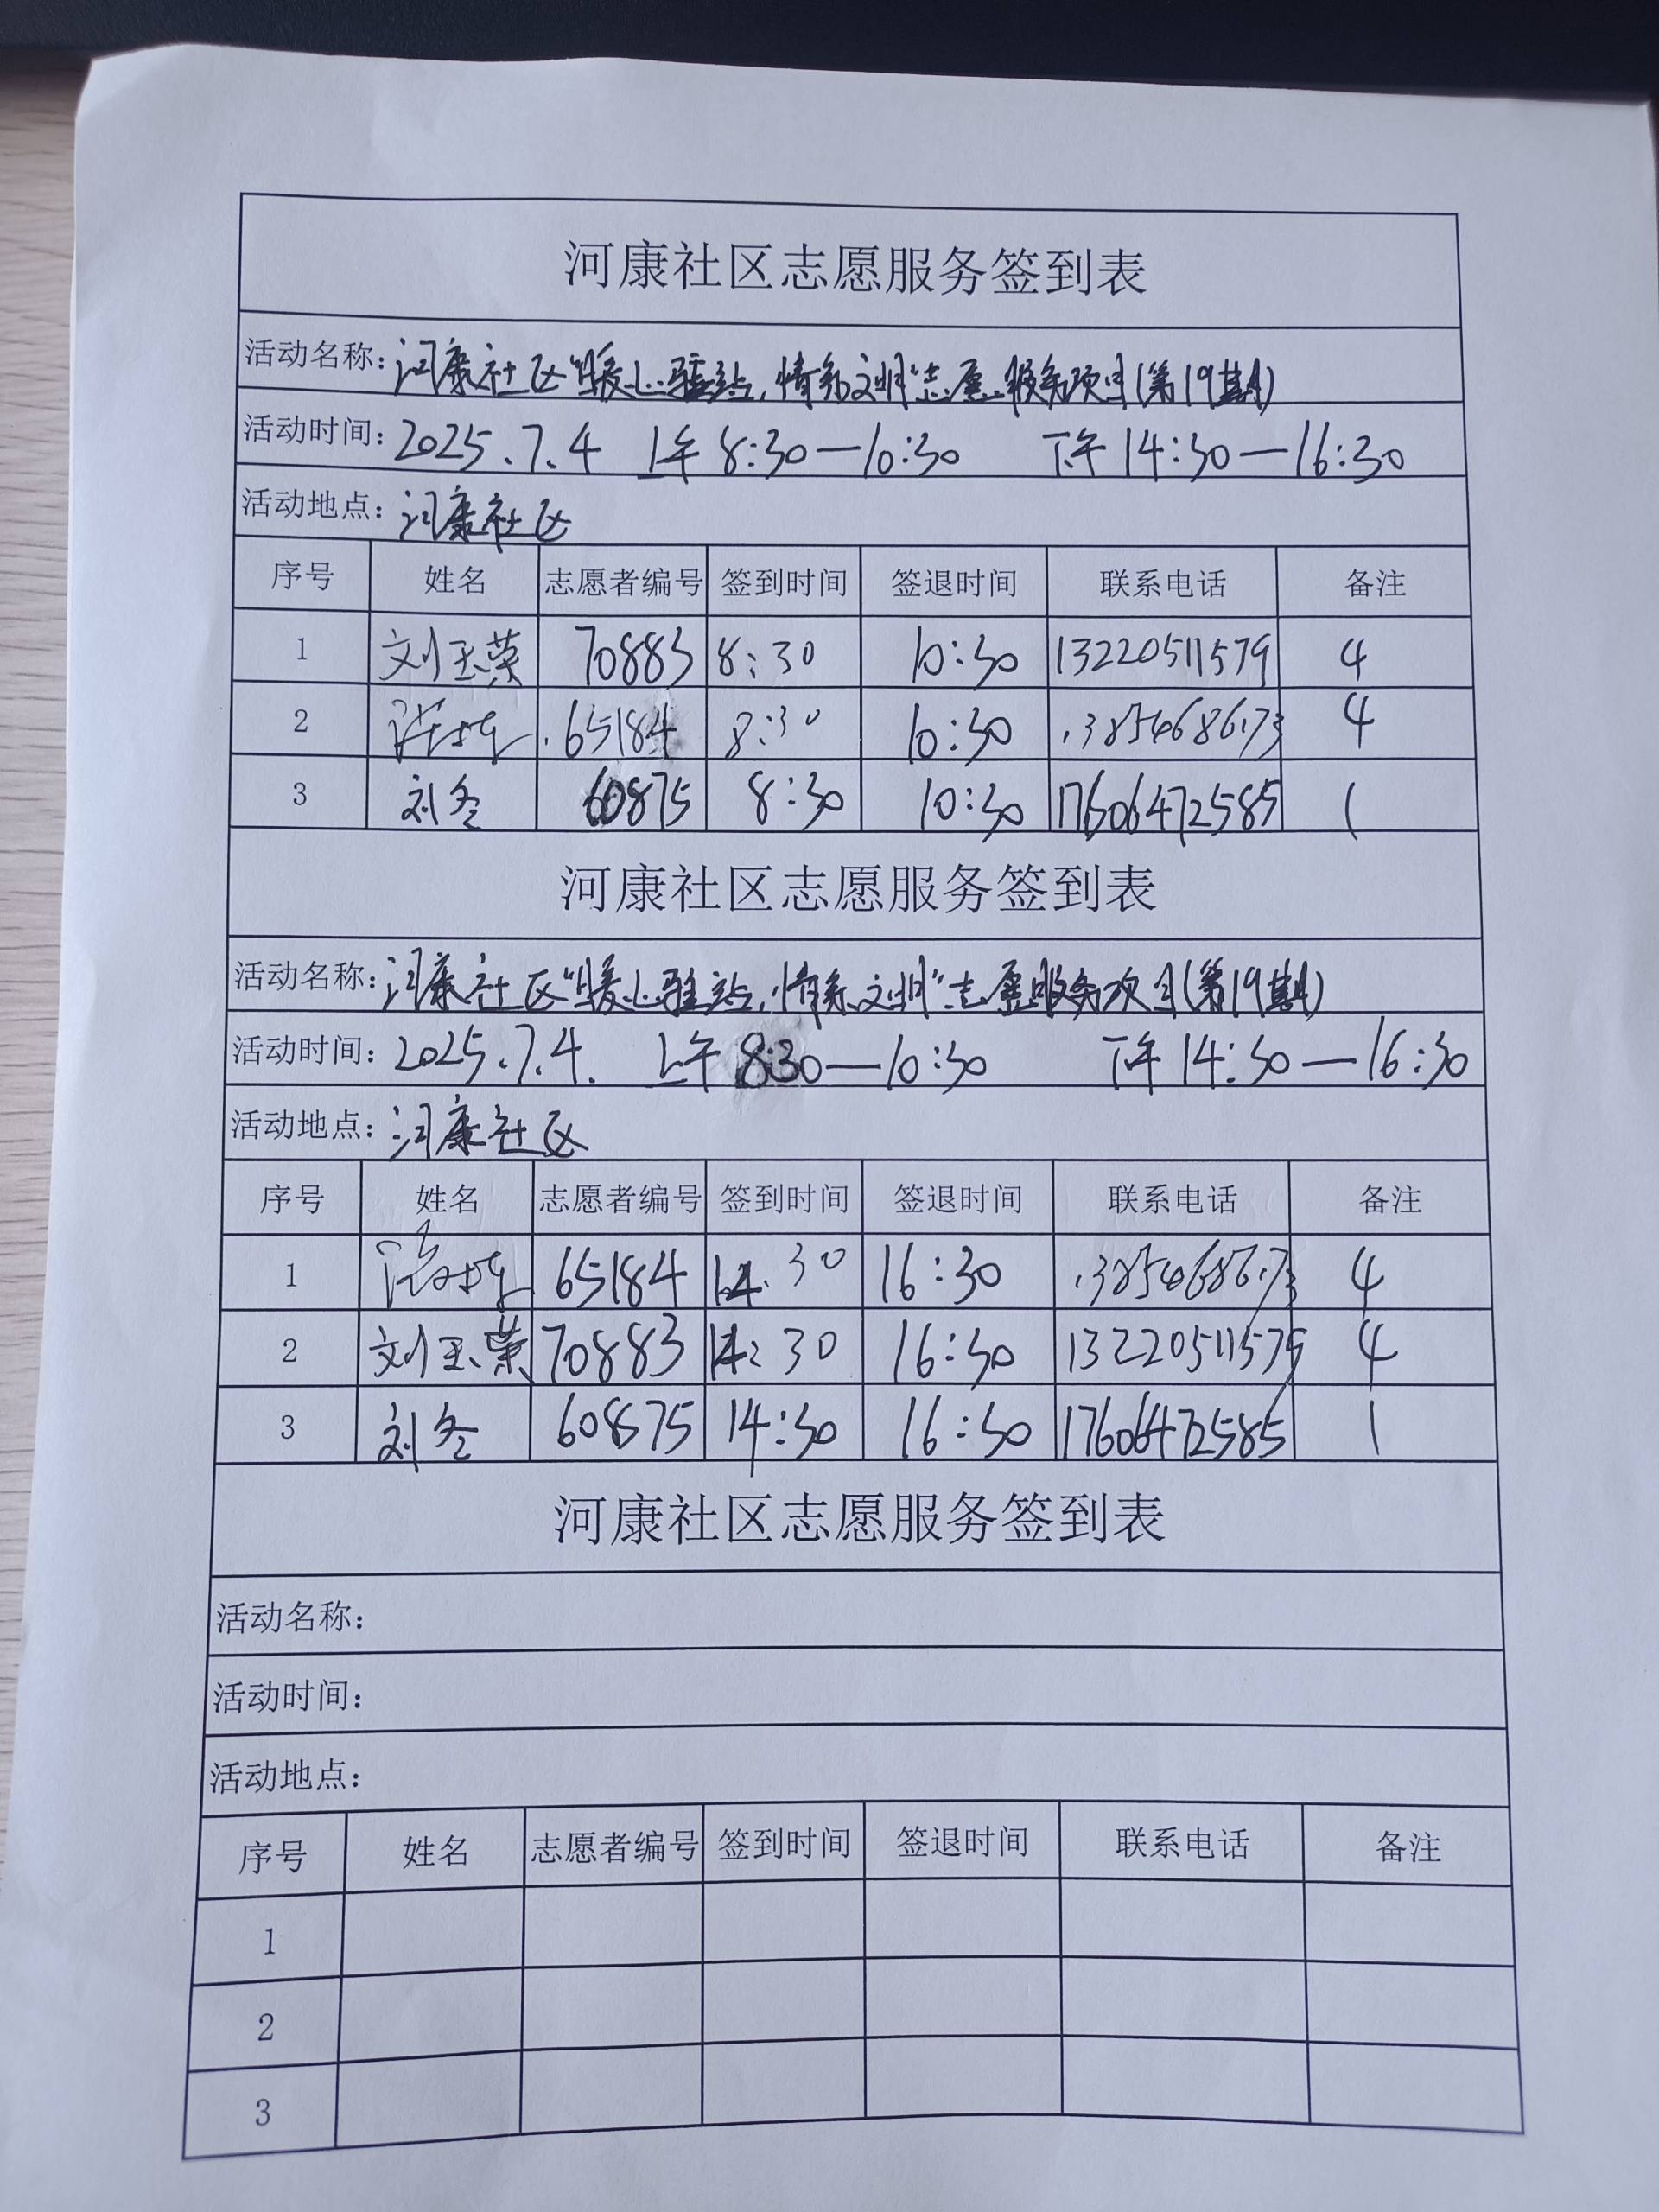 河康社区志愿服务签到表
活动名称：河康社区"暖心驿站,情系文明"志愿服务项目(第19期)
活动时间：2025.7.4 上午8:30—10:30 下午14:30—16:30
活动地点：河康社区
序号 姓名 志愿者编号 签到时间 签退时间 联系电话 备注
1 刘玉荣 70883 8:30 10:30 13220511579 4
2 65184 8:30 10:30 4
3 刘冬 60875 8:30 10:30 17606472585 1
河康社区志愿服务签到表
活动名称：河康社区"暖心驿站,情系文明"志愿服务项目(第19期)
活动时间：2025.7.4. 上午8:30—10:30 下午14:30—16:30
活动地点：河康社区
序号 姓名 志愿者编号 签到时间 签退时间 联系电话 备注
1 65184 14.30 16:30 4
2 刘玉荣 70883 14:30 16:30 13220511579 4
3 刘冬 60875 14:30 16:30 17606472585 1
河康社区志愿服务签到表
活动名称：
活动时间：
活动地点：
序号 姓名 志愿者编号 签到时间 签退时间 联系电话 备注
1
2
3